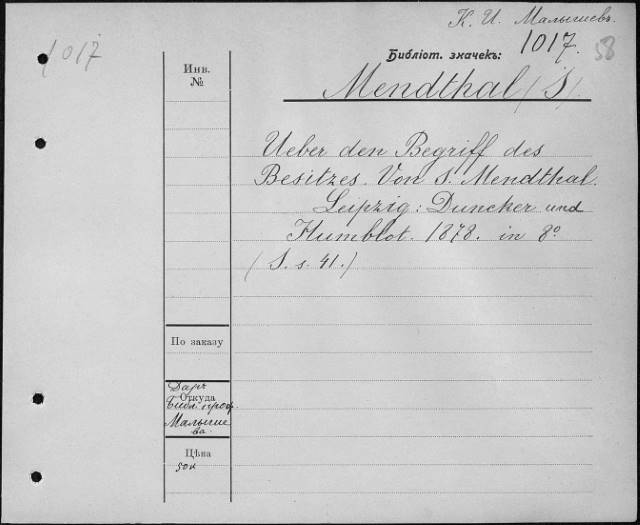 К. И. Малышевъ.
1017
Библіот. значекъ:
1017.
58
Инв.
№
Mendthal (S).
Ueber den Begriff des
Besitzes. Von S. Mendthal.
Leipzig: Duncker und
Humblot. 1878. in 8º
(S. s. 41.)
По заказу
Даръ
Откуда
Библ. проф.
Малыше
ва.
Цѣна
50к